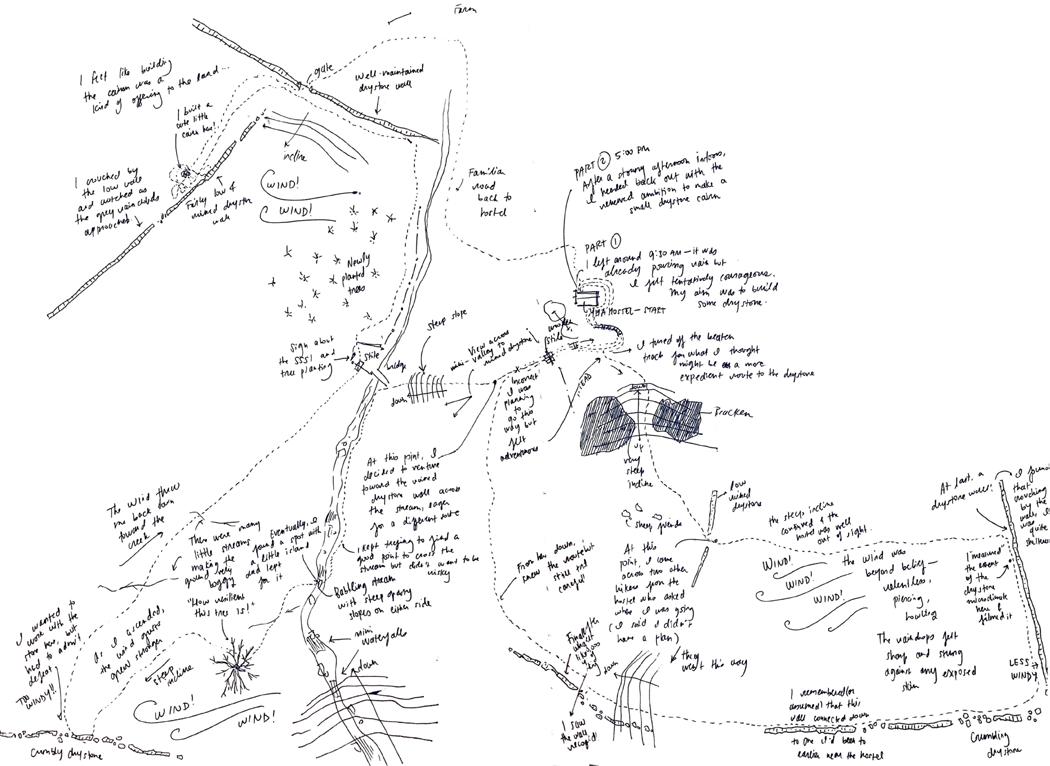 Farm
gate
Well-maintained
drystone wall
I feel like building
the cairn was a
kind of offering to the land...
I built a
cute little
cairn here!
I crouched by
the low wall
and watched as
the grey rain clouds
approached.
Fairly low &
ruined drystone
wall
incline
WIND!
WIND!
Newly
planted
trees
Sign about
the SSSI and
tree planting
stile
bridge
Familiar
road
back to
hostel
PART ② 5:00 PM
After a stormy afternoon indoors,
I headed back out with the
renewed ambition to make a
small drystone cairn
PART ①
I left around 9:30 AM — it was
already pouring rain but
I felt tentatively courageous.
My aim was to build
some drystone.
YHA HOSTEL — START
wooden
stile
I turned off the beaten
track for what I thought
might be a more
expedient route to the drystone
steep slope
down
View across
mini-valley to
ruined drystone
Incorrect
I was
planning
to
go this
way but
felt
adventurous
down
up
very
steep
incline
Bracken
At this point, I
decided to venture
toward the ruined
drystone wall across
the stream, eager
for a different route
I kept trying to find a
good point to cross the
stream but didn't want to be
risky
The wind threw
me back down
toward the
creek
There were many
little streams
making the
ground very
boggy
Eventually, I
found a spot with
a little island
and leapt
for it
"How resilient
this tree is!"
Babbling stream
with steep grassy
slopes on either side
mini
waterfalls
down
I wanted to
work with the
stone here, but
had to admit
defeat
TOO
WINDY!!
As I ascended,
the wind grew
even stronger
steep
incline
WIND!
WIND!
Crumbly drystone
From here down, I
knew the route but
still trod
careful
sheep friends
low
ruined
drystone
At this
point, I came
across two other
hikers from the
hostel who asked
where I was going
(I said I didn't
have a plan)
they
went this way
down
I saw
the wall
the steep incline
continued & the
hostel was well
out of sight.
WIND!
WIND!
WIND!
the wind was
beyond belief—
relentless,
piercing,
howling
The raindrops felt
sharp and stung
against any exposed
skin
At last, a
drystone wall!
I found
that
crouching
by the
wall, was
quite
I measured
the extent
of the
drystone
microclimate
here &
filmed it
LESS
WINDY
I remembered (or
assumed) that this
wall connected down
to one I'd been to
earlier near the hostel
Crumbling
drystone